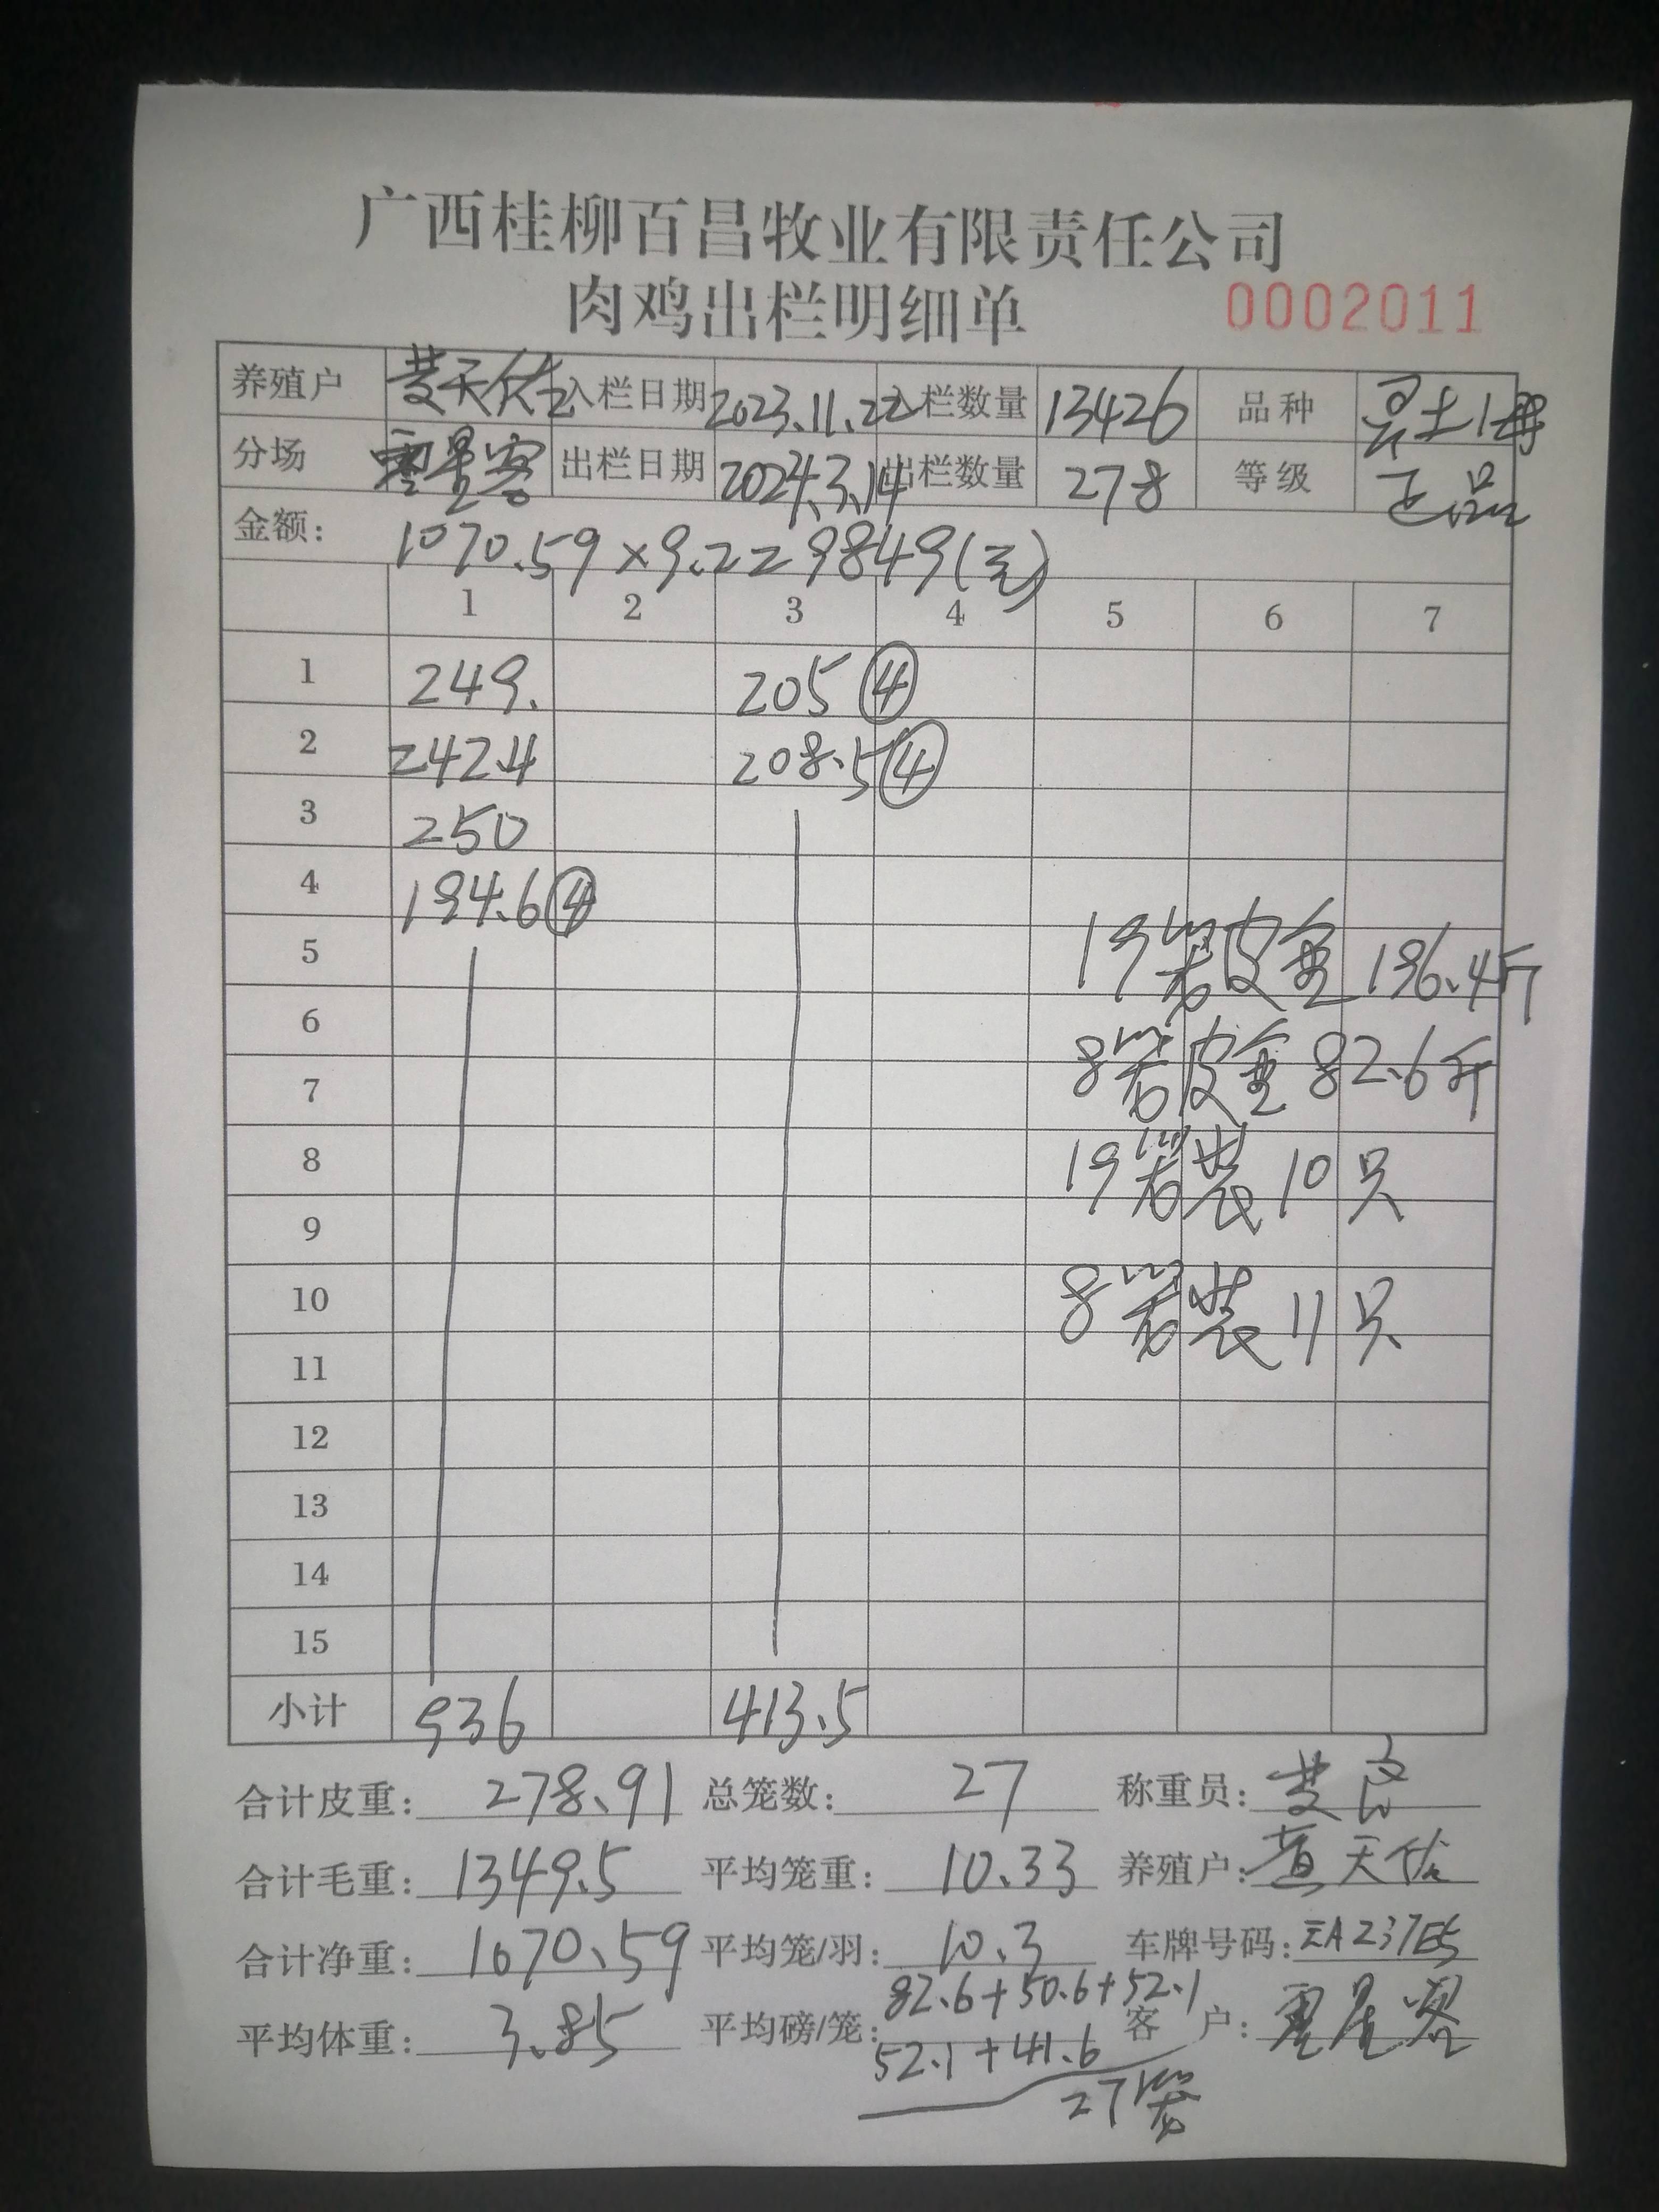 广西桂柳百昌牧业有限责任公司
肉鸡出栏明细单 0002011
养殖户 黄天佑 入栏日期 2023.11.22 入栏数量 13426 品种 土
分场 出栏日期 2024.3.14 出栏数量 278 等级 正品
金额: 1070.59×9.2=9849(元)
1 2 3 4 5 6 7
1 249. 205 ④
2 242.4 208.5 ④
3 250
4 194.6 ④
5 19笼皮重196.4斤
6
7 8笼皮重82.6斤
8 19笼装10只
9
10 8笼装11只
11
12
13
14
15
小计 936 413.5
合计皮重: 278.91 总笼数: 27 称重员: 黄
合计毛重: 1349.5 平均笼重: 10.33 养殖户: 黄天佑
合计净重: 1070.59 平均笼/羽: 10.3 车牌号码:
平均体重: 3.85 平均磅/笼: 82.6+50.6+52.1 客户:
52.1+41.6
27笼